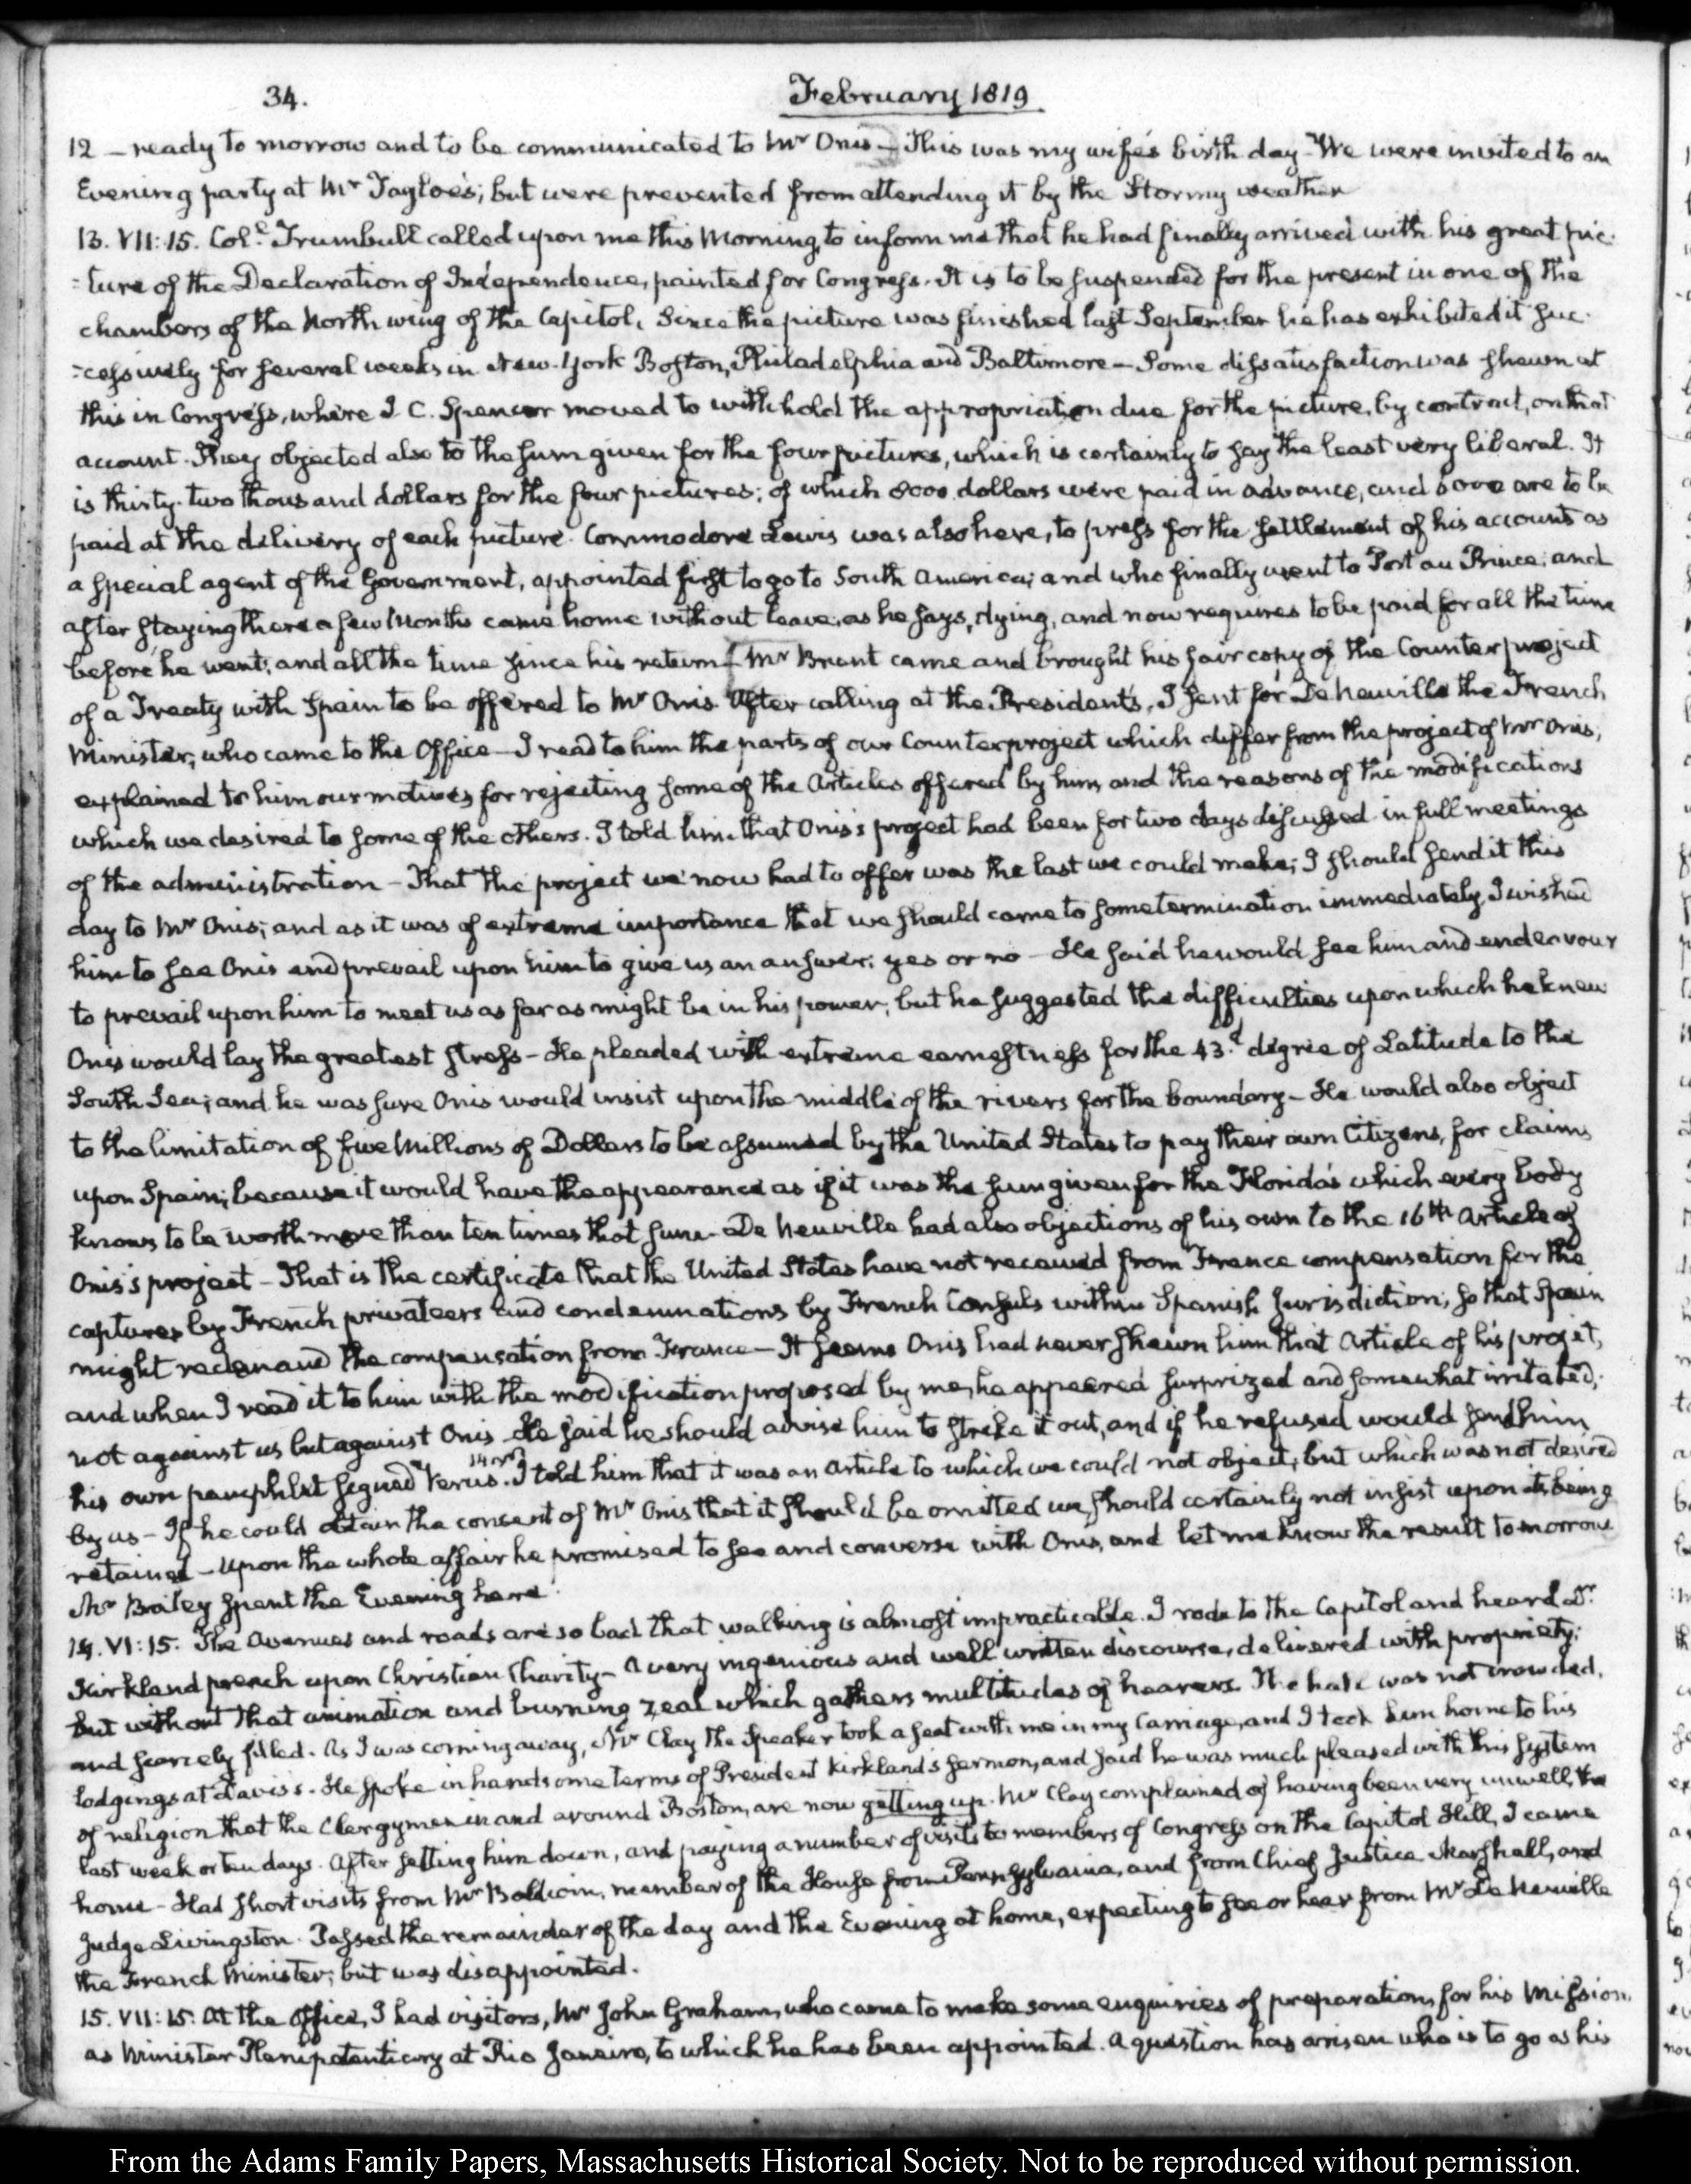 34.
February 1819
12 – ready to morrow and to be communicated to Mr Onis – This was my wife's birth day – We were invited to an
Evening party at Mr Tayloe's; but were prevented from attending it by the Stormy weather
13. VII:15. Coll. Trumbull called upon me this Morning, to inform me that he had finally arrived with his great pic-
:ture of the Declaration of Independence, painted for Congress. It is to be suspended for the present in one of the
chambers of the North wing of the Capitol. Since the picture was finished last September he has exhibited it suc-
:cessively for several weeks in New-York Boston, Philadelphia and Baltimore – Some dissatisfaction was shewn at
this in Congress, where J. C. Spencer moved to withhold the appropriation due for the picture, by contract, on that
account. They objected also to the sum given for the four pictures, which is certainly to say the least very liberal. It
is thirty-two thousand dollars for the four pictures; of which 8000 dollars were paid in advance, and 6000 are to be
paid at the delivery of each picture. Commodore Lewis was also here, to press for the settlement of his accounts as
a special agent of the Government, appointed first to go to South America; and who finally went to Port au Prince; and
after staying there a few Months came home without leave, as he says, dying, and now requires to be paid for all the time
before he went; and all the time since his return [Mr Brent came and brought his fair copy of the Counter project
of a Treaty with Spain to be offered to Mr Onis. After calling at the President's, I sent for De Neuville the French
Minister, who came to the Office – I read to him the parts of our Counterproject which differ from the project of Mr Onis;
explained to him our motives for rejecting some of the Articles offered by him, and the reasons of the modifications
which we desired to some of the others. I told him that Onis's project had been for two days discussed in full meetings
of the administration – That the project we now had to offer was the last we could make; I should send it this
day to Mr Onis; and as it was of extreme importance that we should come to some termination immediately I wished
him to see Onis and prevail upon him to give us an answer; yes or no – He said he would see him and endeavour
to prevail upon him to meet us as far as might be in his power; but he suggested the difficulties upon which he knew
Onis would lay the greatest stress – He pleaded with extreme earnestness for the 43.d degree of Latitude to the
South Sea; and he was sure Onis would insist upon the middle of the rivers for the boundary – He would also object
to the limitation of five Millions of Dollars to be assumed by the United States to pay their own Citizens, for claims
upon Spain; because it would have the appearance as if it was the sum given for the Florida's which every body
knows to be worth more than ten times that sum – De Neuville had also objections of his own to the 16th Article of
Onis's project – That is the certificate that the United States have not received from France compensation for the
captures by French privateers and condemnations by French Consuls within Spanish Jurisdiction; so that Spain
might redemand the compensation from France – It seems Onis had never shewn him that Article of his projet,
and when I read it to him with the modification proposed by me, he appeared surprized and somewhat irritated;
not against us but against Onis. He said he should advise him to strike it out, and if he refused would send him
his own pamphlet signed Verus. I told him that it was an Article to which we could not object, but which was not desired
by us – If he could obtain the consent of Mr Onis that it should be omitted we should certainly not insist upon its being
retained – Upon the whole affair he promised to see and converse with Onis, and let me know the result tomorrow
Mr Bailey spent the Evening here.
14. VI:15. The Avenues and roads are so bad that walking is almost impracticable. I rode to the Capitol and heard Dr
Kirkland preach upon Christian Charity – A very ingenious and well written discourse, delivered with propriety;
but without that animation and burning zeal which gathers multitudes of hearers. The hall was not crowded,
and scarcely filled. As I was coming away, Mr Clay the Speaker took a seat with me in my Carriage, and I took him home to his
lodgings at Davis's. He spoke in handsome terms of President Kirkland's sermon, and said he was much pleased with this system
of religion that the Clergymen in and around Boston, are now getting up. Mr Clay complained of having been very unwell, the
last week or ten days. After setting him down, and paying a number of visits to members of Congress on the Capitol Hill, I came
home – Had short visits from Mr Baldwin, member of the House from Pennsylvania, and from Chief Justice Marshall, and
Judge Livingston. Passed the remainder of the day and the Evening at home, expecting to see or hear from Mr De Neuville
the French Minister; but was disappointed.
15. VII:15. At the Office, I had visitors, Mr John Graham, who came to make some enquiries of preparation, for his Mission,
as Minister Plenipotentiary at Rio Janeiro, to which he has been appointed. A question has arisen who is to go as his
From the Adams Family Papers, Massachusetts Historical Society. Not to be reproduced without permission.